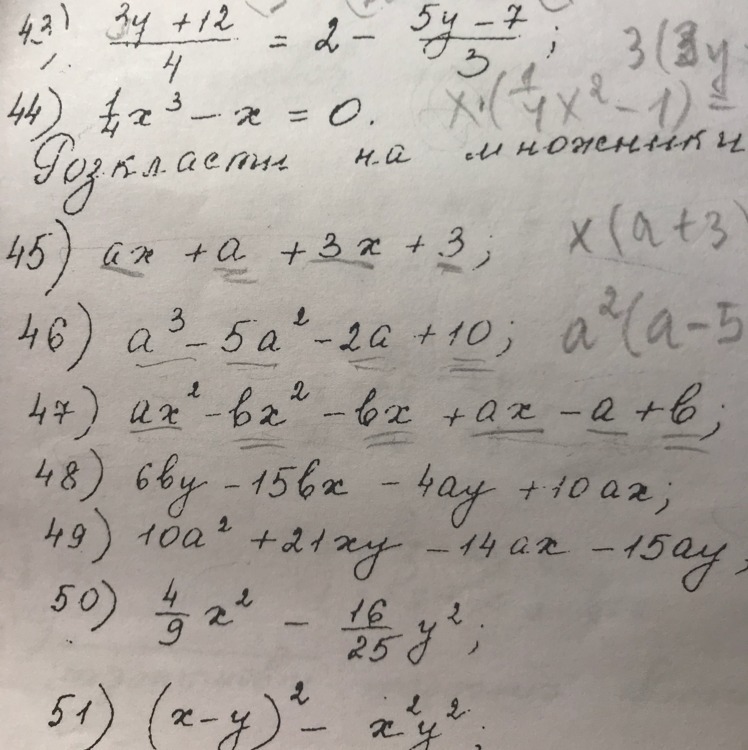 43) (3y + 12)/4 = 2 - (5y - 7)/3; 3(3y
44) 1/4 x³ - x = 0. x·(1/4 x² - 1) =
Розкласти на множники
45) ax + a + 3x + 3; x(a+3)
46) a³ - 5a² - 2a + 10; a²(a-5
47) ax² - bx² - bx + ax - a + b;
48) 6by - 15bx - 4ay + 10ax;
49) 10a² + 21xy - 14ax - 15ay,
50) 4/9 x² - 16/25 y²;
51) (x-y)² - x²y²;